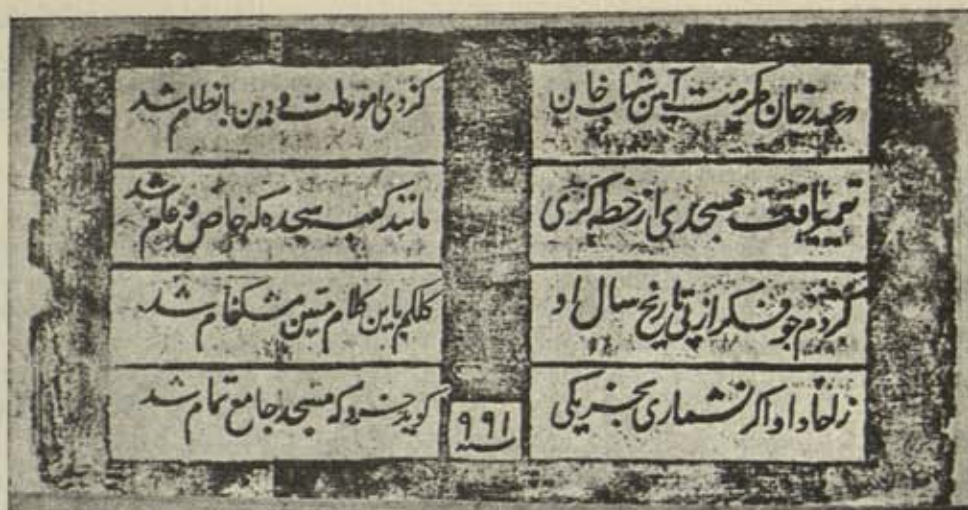 در عهد خان مکرمت آیین شهاب خان
کز وی امور ملت و دین بانظام شد
تعمیر یافت مسجدی از خطه کری
مانند کعبه سجده که خاص و عام شد
کردم چو فکر از پی تاریخ سال او
کلکم باین کلام متین مشکفام شد
اگر نشماری بجز یکی
گوید خرد که مسجد جامع تمام شد
سنه ۹۹۱